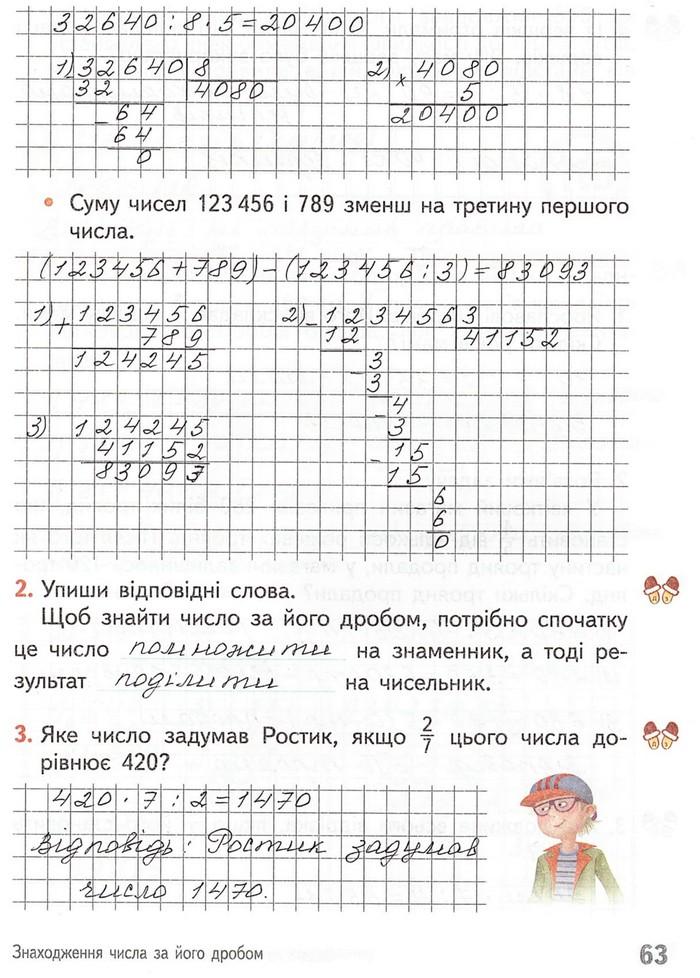 32640 : 8 · 5 = 20400
1) 32640 | 8   2) × 4080
32   4080   5
– 64   20400
64
0
• Суму чисел 123 456 і 789 зменш на третину першого
числа.
(123456 + 789) – (123456 : 3) = 83093
1) + 123456   2) – 123456 | 3
789   12   41152
124245   – 3
3
– 4
3) 124245   3
41152   – 15
83093   15
6
6
0
2. Упиши відповідні слова.
Щоб знайти число за його дробом, потрібно спочатку
це число помножити на знаменник, а тоді ре-
зультат поділити на чисельник.
3. Яке число задумав Ростик, якщо 2/7 цього числа до-
рівнює 420?
420 · 7 : 2 = 1470
Відповідь: Ростик задумав
число 1470.
Знаходження числа за його дробом   63